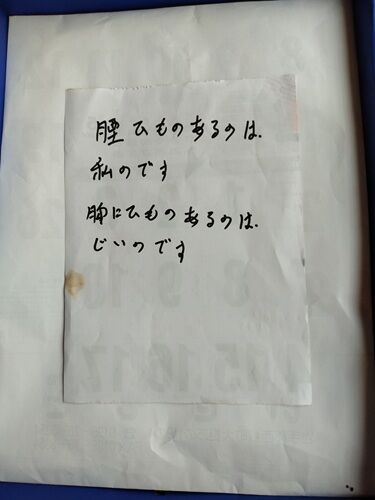 腰ひものあるのは、
私のです
胸にひものあるのは、
じいのです